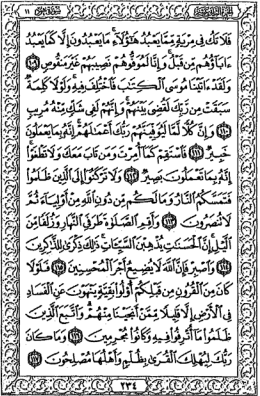 فَلَا تَكُ فِي مِرْيَةٍ مِّمَّا يَعْبُدُ هَٰٓؤُلَآءِ ۚ مَا يَعْبُدُونَ إِلَّا كَمَا يَعْبُدُ
ءَابَآؤُهُم مِّن قَبْلُ ۚ وَإِنَّا لَمُوَفُّوهُمْ نَصِيبَهُمْ غَيْرَ مَنقُوصٍ ١٠٩
وَلَقَدْ ءَاتَيْنَا مُوسَى ٱلْكِتَٰبَ فَٱخْتُلِفَ فِيهِ ۚ وَلَوْلَا كَلِمَةٌ
سَبَقَتْ مِن رَّبِّكَ لَقُضِيَ بَيْنَهُمْ ۚ وَإِنَّهُمْ لَفِي شَكٍّ مِّنْهُ مُرِيبٍ
١١٠ وَإِنَّ كُلًّا لَّمَّا لَيُوَفِّيَنَّهُمْ رَبُّكَ أَعْمَٰلَهُمْ ۚ إِنَّهُۥ بِمَا يَعْمَلُونَ
خَبِيرٌ ١١١ فَٱسْتَقِمْ كَمَآ أُمِرْتَ وَمَن تَابَ مَعَكَ وَلَا تَطْغَوْا۟ ۚ
إِنَّهُۥ بِمَا تَعْمَلُونَ بَصِيرٌ ١١٢ وَلَا تَرْكَنُوٓا۟ إِلَى ٱلَّذِينَ ظَلَمُوا۟
فَتَمَسَّكُمُ ٱلنَّارُ وَمَا لَكُم مِّن دُونِ ٱللَّهِ مِنْ أَوْلِيَآءَ ثُمَّ
لَا تُنصَرُونَ ١١٣ وَأَقِمِ ٱلصَّلَوٰةَ طَرَفَيِ ٱلنَّهَارِ وَزُلَفًا مِّنَ
ٱلَّيْلِ ۚ إِنَّ ٱلْحَسَنَٰتِ يُذْهِبْنَ ٱلسَّيِّـَٔاتِ ۚ ذَٰلِكَ ذِكْرَىٰ لِلذَّٰكِرِينَ
١١٤ وَٱصْبِرْ فَإِنَّ ٱللَّهَ لَا يُضِيعُ أَجْرَ ٱلْمُحْسِنِينَ ١١٥ فَلَوْلَا
كَانَ مِنَ ٱلْقُرُونِ مِن قَبْلِكُمْ أُو۟لُوا۟ بَقِيَّةٍ يَنْهَوْنَ عَنِ ٱلْفَسَادِ
فِي ٱلْأَرْضِ إِلَّا قَلِيلًا مِّمَّنْ أَنجَيْنَا مِنْهُمْ ۗ وَٱتَّبَعَ ٱلَّذِينَ
ظَلَمُوا۟ مَآ أُتْرِفُوا۟ فِيهِ وَكَانُوا۟ مُجْرِمِينَ ١١٦ وَمَا كَانَ
رَبُّكَ لِيُهْلِكَ ٱلْقُرَىٰ بِظُلْمٍ وَأَهْلُهَا مُصْلِحُونَ ١١٧
٢٣٤